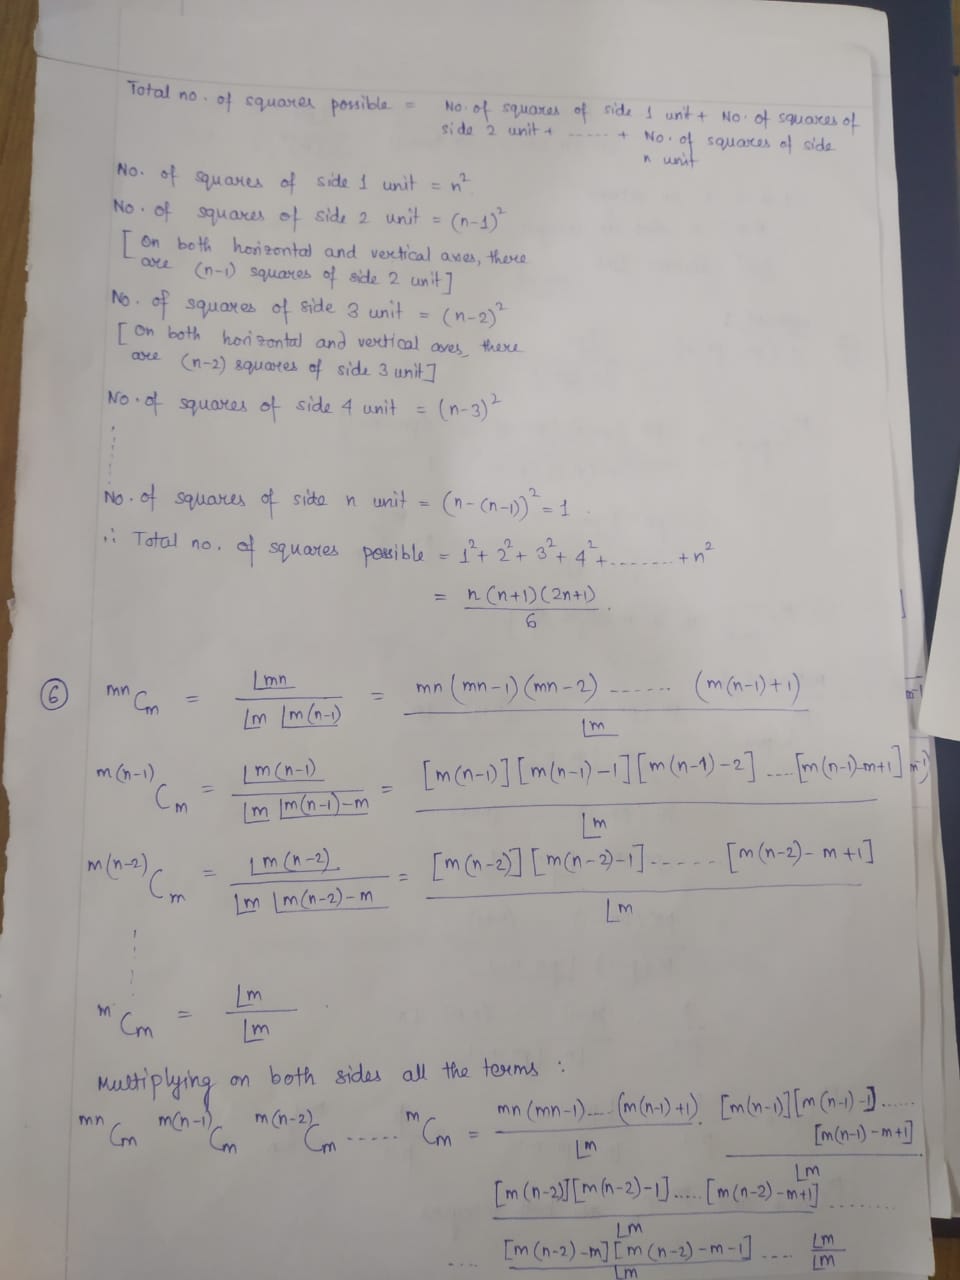 Total no. of squares possible = No. of squares of side 1 unit + No. of squares of
side 2 unit + ...... + No. of squares of side
n unit
No. of squares of side 1 unit = n²
No. of squares of side 2 unit = (n-1)²
[On both horizontal and vertical axes, there
are (n-1) squares of side 2 unit]
No. of squares of side 3 unit = (n-2)²
[On both horizontal and vertical axes, there
are (n-2) squares of side 3 unit]
No. of squares of side 4 unit = (n-3)²
No. of squares of side n unit = (n-(n-1))² = 1
∴ Total no. of squares possible = 1² + 2² + 3² + 4² + ....... + n²
= n(n+1)(2n+1) / 6.
⑥ ᵐⁿCₘ = ⌊mn / ⌊m ⌊m(n-1) = mn(mn-1)(mn-2) ...... (m(n-1)+1) / ⌊m
ᵐ⁽ⁿ⁻¹⁾Cₘ = ⌊m(n-1) / ⌊m ⌊m(n-1)-m = [m(n-1)][m(n-1)-1][m(n-1)-2] .... [m(n-1)-m+1] / ⌊m
ᵐ⁽ⁿ⁻²⁾Cₘ = ⌊m(n-2) / ⌊m ⌊m(n-2)-m = [m(n-2)][m(n-2)-1] ...... [m(n-2)-m+1] / ⌊m
ᵐCₘ = ⌊m / ⌊m
Multiplying on both sides all the terms :
ᵐⁿCₘ ᵐ⁽ⁿ⁻¹⁾Cₘ ᵐ⁽ⁿ⁻²⁾Cₘ ..... ᵐCₘ = mn(mn-1)....(m(n-1)+1) / ⌊m . [m(n-1)][m(n-1)-1] ...... [m(n-1)-m+1] / ⌊m
[m(n-2)][m(n-2)-1] ..... [m(n-2)-m+1] / ⌊m ........
.... [m(n-2)-m][m(n-2)-m-1] / ⌊m .... ⌊m / ⌊m